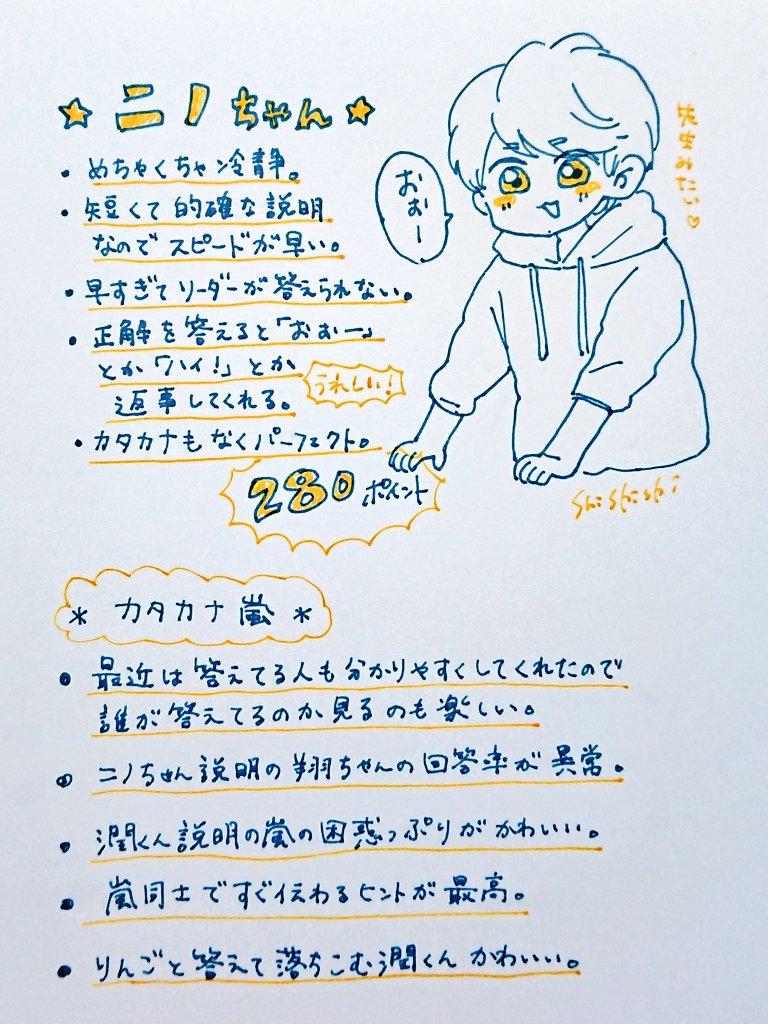 ★ニノちゃん★
・めちゃくちゃ冷静。
・短くて的確な説明
なのでスピードが早い。
・早すぎてリーダーが答えられない。
・正解を答えると「おぉー」
とか「ハイ!」とか
返事してくれる。
うれしい!
・カタカナもなくパーフェクト。
280ポイント
おぉー
先生みたい♡
shishishi
* カタカナ嵐 *
・最近は答えてる人も分かりやすくしてくれたので
誰が答えてるのか見るのも楽しい。
・ニノちゃん説明の翔ちゃんの回答率が異常。
・潤くん説明の嵐の困惑っぷりがかわいい。
・嵐同士ですぐ伝わるヒントが最高。
・りんごと答えて落ちこむ潤くんかわいい。